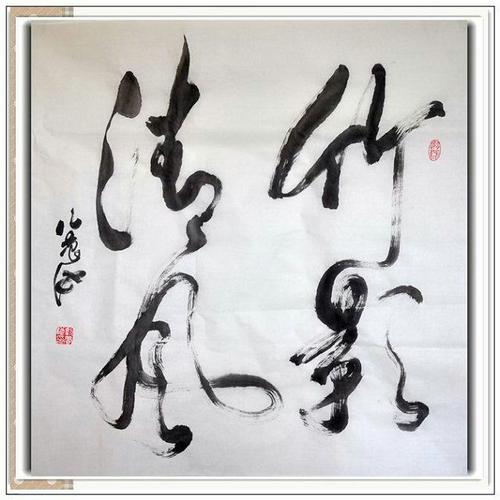 竹影
清风